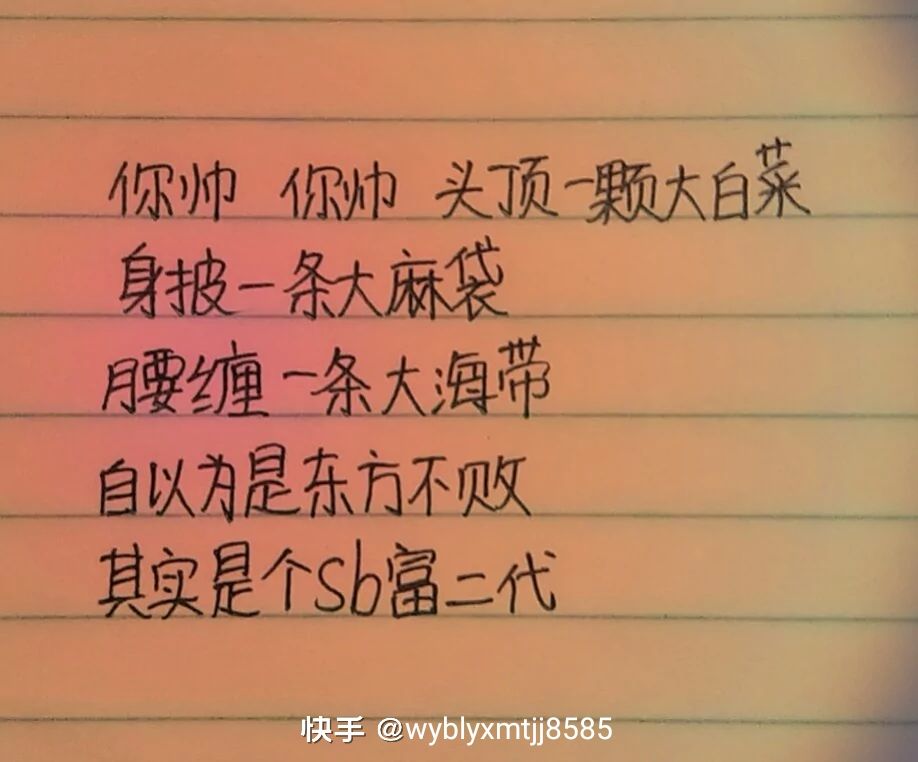 你帅 你帅 头顶一颗大白菜
身披一条大麻袋
腰缠一条大海带
自以为是东方不败
其实是个sb富二代
快手 @wyblyxmtjj8585